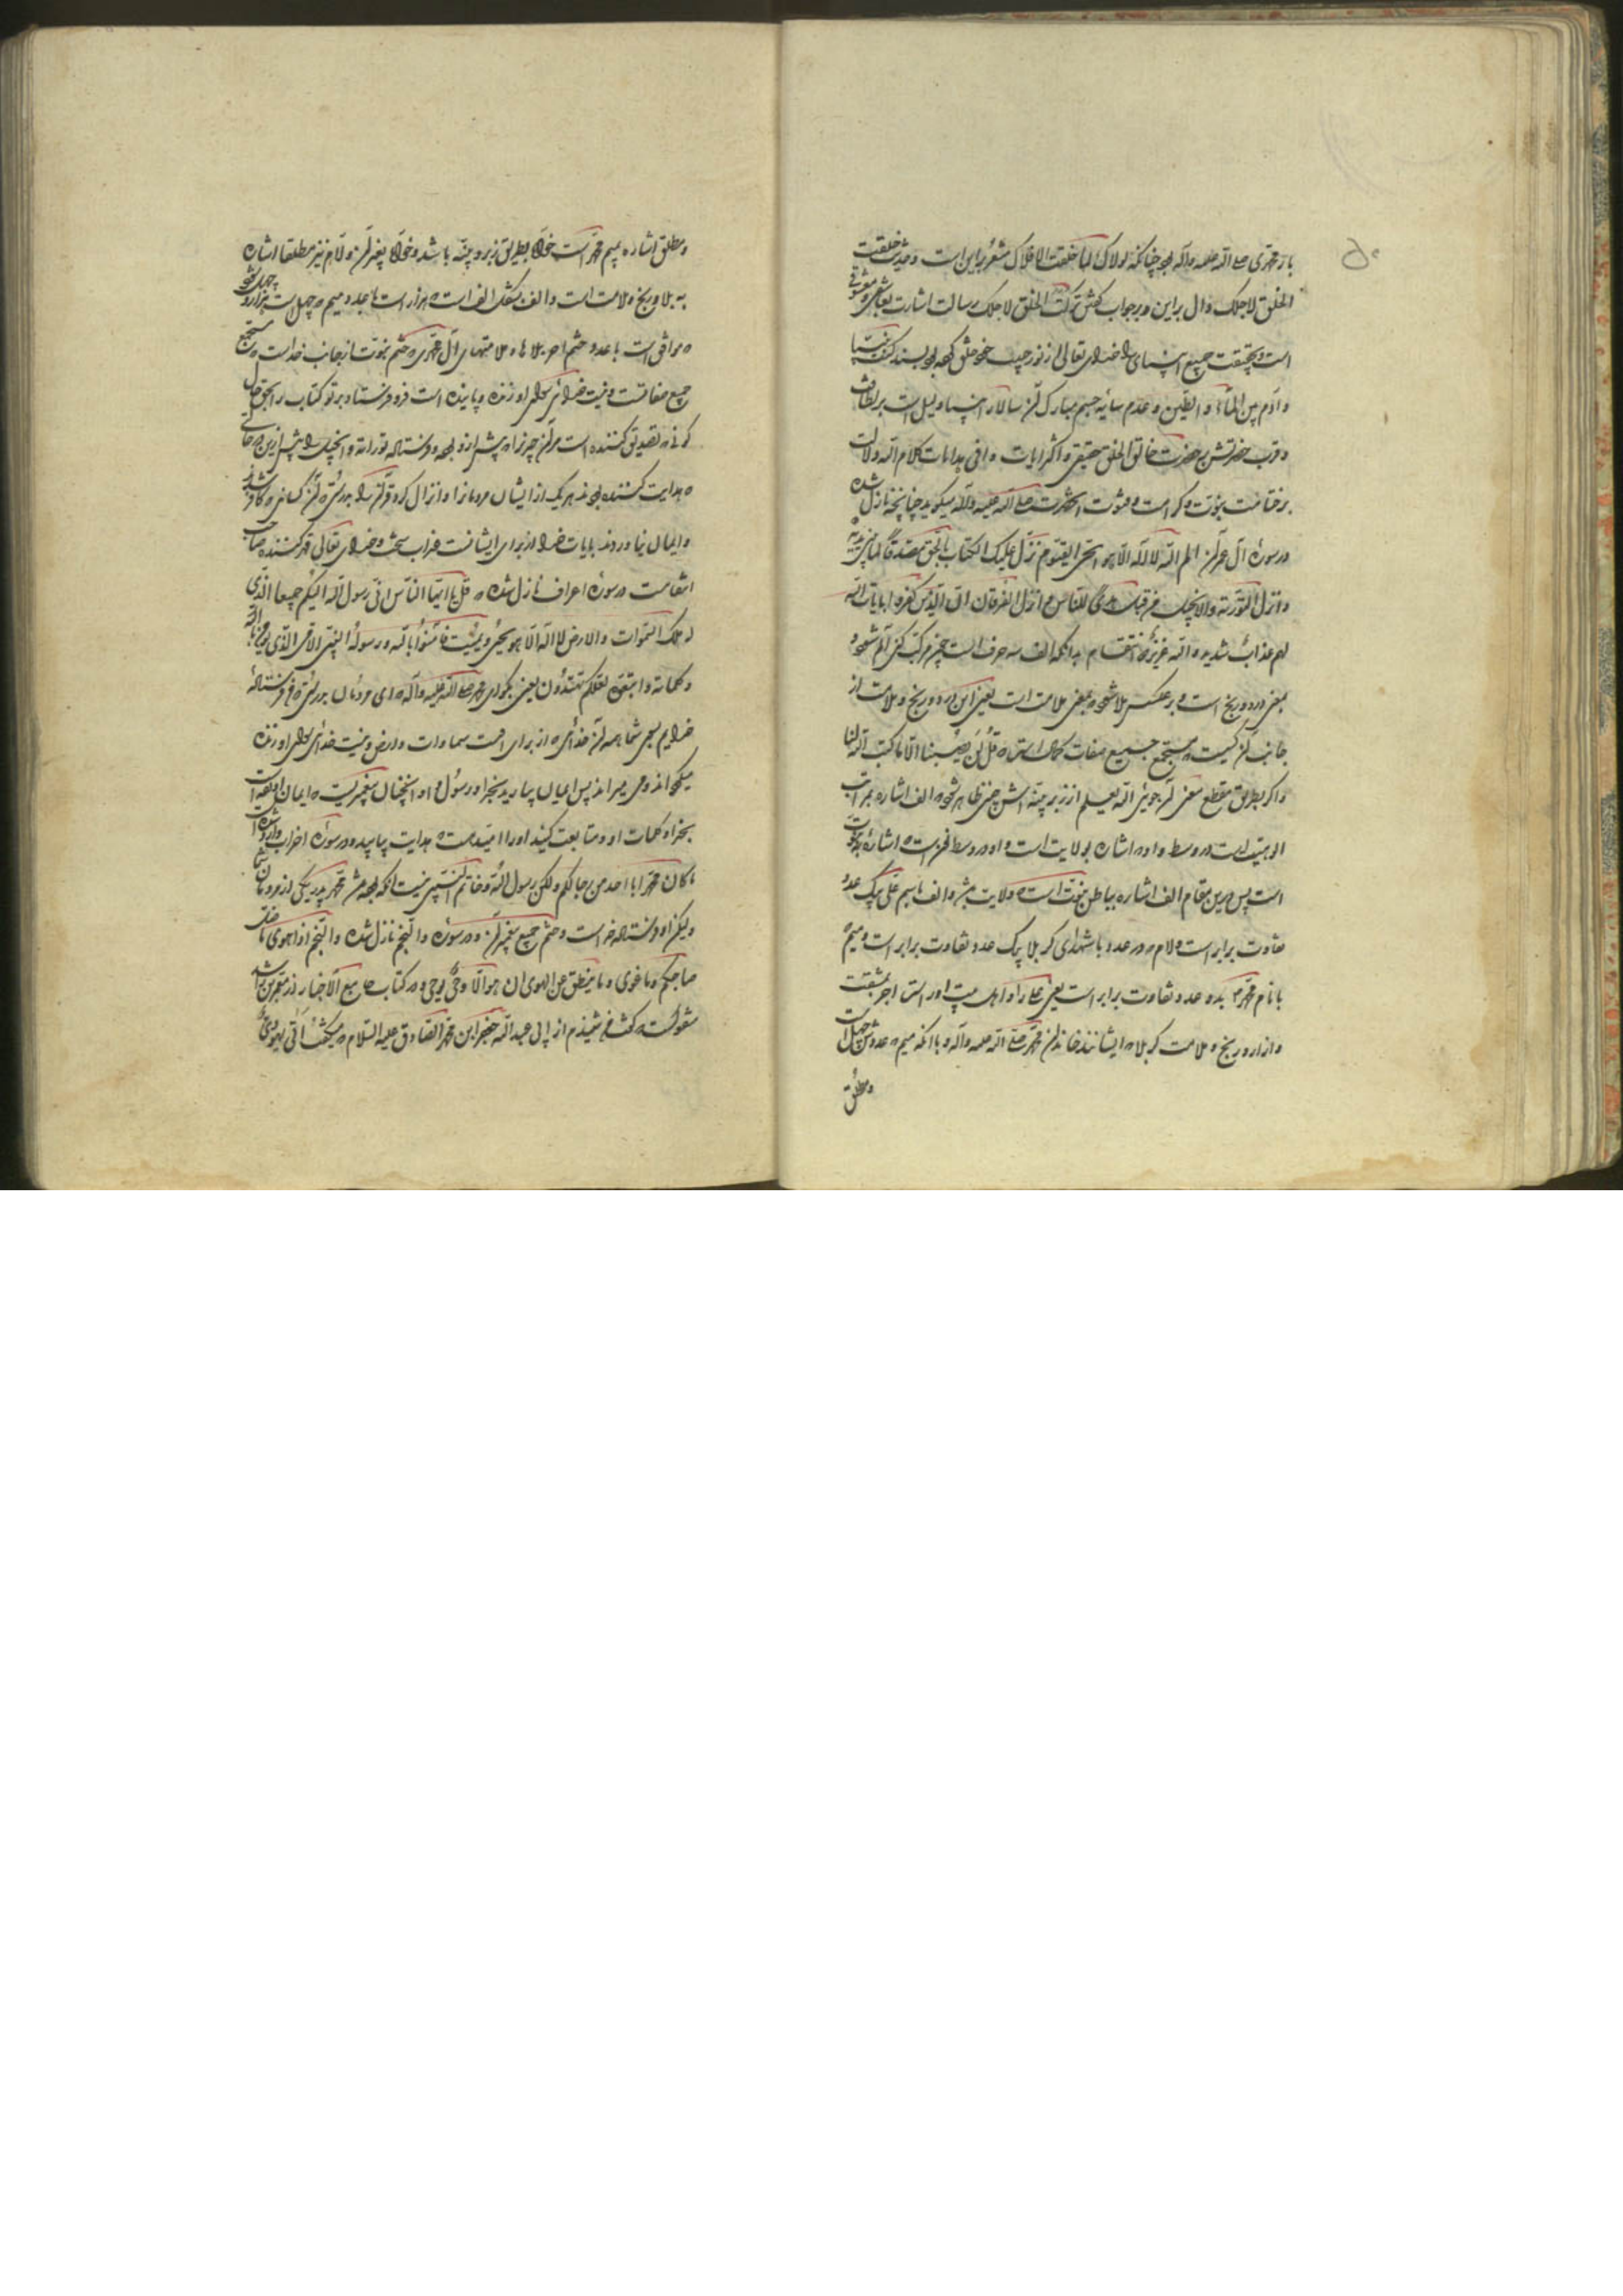 ۵۰
باز محمدی صلی الله علیه وآله بود چنانکه لولاک لما خلقت الافلاک مشعر براین است و حدیث خلقت
الخلق لاجلک دال براین و برجواب کفتن ترکت الخلق لاجلک رسالت اشارت بعاشقی و معشوقی
است و بحقیقت جمیع اشیای را خدای تعالی از نور حبیب خود خلق کرده بود بسند کنت نبیا
و آدم بین الماء و الطین و عدم سایه جسم مبارک آن سالار انبیا دلیل است بر لطافت
و قرب حضرتش بحضرت خالق الخلق حقیقی و اکثر ایات وافی هدایات کلام الله دلالت
بر ختامت نبوت و کرامت و فتوت آنحضرت صلی الله علیه وآله میکوید چنانچه نازل شده
در سوره آل عمران الم الله لا اله الا هو الحی القیوم نزل علیک الکتاب بالحق مصدقا لما بین یدیه
و انزل التوریة والانجیل من قبل هدی للناس و انزل الفرقان ان الذین کفروا بایات الله
لهم عذاب شدید و الله عزیز ذو انتقام بدانکه الف سه حرف است چون مرکب کنی الم شود و
بمعنی درد و رنج است و برعکس ملا شود بمعنی ملامت است یعنی این درد و رنج و ملامت از
جانب آن کیست که مستجمع جمیع صفات کمال است که قل لن یصیبنا الا ما کتب الله لنا
و اکر بطریق مقطع معنی آن جوئی الله یعلم از زبر و بینه اش چنین ظاهر شود که الف اشاره بمراتب
الوهیت است در وسط و او در اشاره بولایت است و او در وسط فخر است که اشاره بنبوت
است پس درین مقام الف اشاره بباطن نبوت است که ولایت بشر و الف باسم علی بیک عدد
تفاوت برابر است و لام در عدد با شهدای کربلا بیک عدد تفاوت برابر است و میم
با نام محمد بدو عدد تفاوت برابر است یعنی علی را و اهل بیت او راست اجر مشقت
و از درد رنج و ملامت کربلا که ایشانند خاندان محمد صلی الله علیه وآله و با آنکه میم که عددش چهل است
ومطلق
ومطلق اشاره بمیم محمد است خواه بطریق زبر و بینه باشد و خواه بغیر آن و لام نیز مطلقا اشاره
به بلا و رنج و ملامت است و الف بشکل الف است که هزار است بابجد و میم که چهل است هزار و چهل شود
که موافق است با عدد ختم اجر بلاها و ملامتهای آل محمدی که ختم نبوت از جانب خداست که مستجمع
جمیع صفاتست و نیست خدائی بجز او زنده و پاینده است فرو فرستاد بر تو کتاب را بحق حال
کونه که تصدیق کننده است مر آن چیز را که پیش از و بوده و فرستاده توراته و انجیل را پیش ازین در حالتی
که هدایت کننده بودند هر یک از ایشان مردمانرا و انزال کرد قرآن را بدرستی که آن کسانی که کافر شدند
و ایمان نیاوردند بایات خدا از برای ایشانست عذاب سخت و خدای تعالی قهر کننده صاحب
انتقامست در سوره اعراف نازل شده که قل یا ایها الناس انی رسول الله الیکم جمیعا الذی
له ملک السموات والارض لا اله الا هو یحیی ویمیت فآمنوا بالله ورسوله النبی الامی الذی یؤمن بالله
وکلماته واتبعوه لعلکم تهتدون یعنی بکو ای محمد صلی الله علیه وآله که ای مردمان بدرستی که من فرستاده
خدایم بسوی شما همه آن خدائی که از برای اوست سماوات و ارض و نیست خدائی بجز او زنده
میکرداند و می میراند پس ایمان بیارید بخدا و رسول او و آنچنان پیغمبریست که ایمان آورده است
بخدا و کلمات او و متابعت کنید او را امیدست که هدایت بیابید و در سوره احزاب وارد شده است
ما کان محمد ابا احد من رجالکم ولکن رسول الله وخاتم النبیین نیست آنکه بوده باشد محمد پدر یکی از مردمان شما
ولیکن او فرستاده خداست و ختم جمیع پیغمبران و در سوره والنجم نازل شده والنجم اذا هوی ما ضل
صاحبکم وما غوی وما ینطق عن الهوی ان هو الا وحی یوحی و در کتاب جامع الاخبار از معمر بن راشد
منقولست که گفت من شنیدم از ابی عبدالله جعفر ابن محمد الصادق علیه السلام که میکفت اتی یهودی